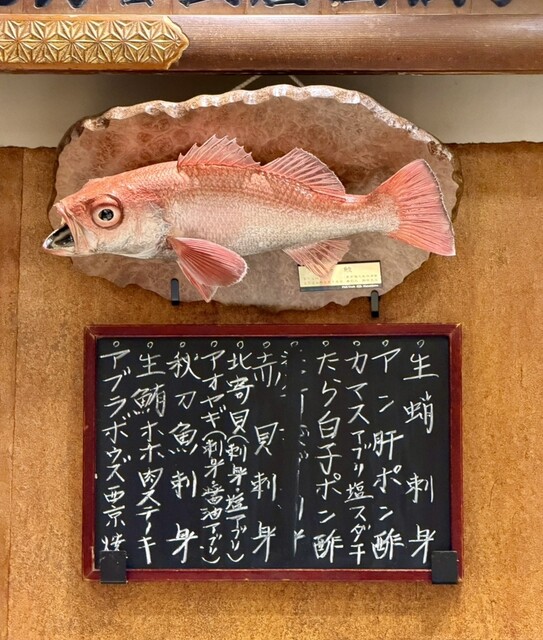 生蛸刺身
アン肝ポン酢
カマスアブリ塩スダチ
たら白子ポン酢
赤貝刺身
北寄貝(刺身塩アブリ)
アオヤギ(刺身醤油アブリ)
秋刀魚刺身
生鮪ホホ肉ステーキ
アブラボウズ西京焼